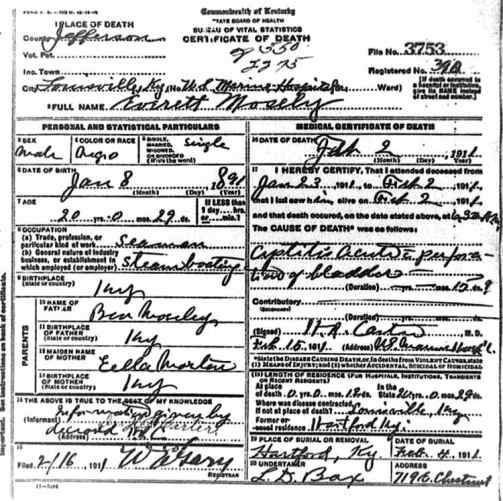 Commonwealth of Kentucky
STATE BOARD OF HEALTH
BUREAU OF VITAL STATISTICS
CERTIFICATE OF DEATH
1 PLACE OF DEATH
County Jefferson
Vot. Pct.
File No. 3753
Inc. Town
Registered No.
City Louisville Ky No. U.S. Marine Hospital Ward)
(If death occurred in a hospital or institution, give its NAME instead of street and number.)
2 FULL NAME Everett Mosely
PERSONAL AND STATISTICAL PARTICULARS
3 SEX Male
4 COLOR OR RACE Negro
5 SINGLE, MARRIED, WIDOWED, OR DIVORCED (Write the word) Single
6 DATE OF BIRTH
Jan 8 1891
(Month) (Day) (Year)
7 AGE
20 yrs. 0 mos. 29 ds.
If LESS than 1 day, hrs. or min.?
8 OCCUPATION
(a) Trade, profession, or particular kind of work Seaman
(b) General nature of industry business, or establishment in which employed (or employer) Steamboating
9 BIRTHPLACE
(State or country) Ky
PARENTS
10 NAME OF FATHER Ben Mosley
11 BIRTHPLACE OF FATHER
(State or country) Ky
12 MAIDEN NAME OF MOTHER Ella Morton
13 BIRTHPLACE OF MOTHER
(State or country) Ky
14 THE ABOVE IS TRUE TO THE BEST OF MY KNOWLEDGE
(Informant) Information given by
15
Filed 2/16, 1911
REGISTRAR
MEDICAL CERTIFICATE OF DEATH
16 DATE OF DEATH
Feb. 2, 1911
(Month) (Day) (Year)
17 I HEREBY CERTIFY, That I attended deceased from
Jan 23, 1911, to Feb 2, 1911,
that I last saw him alive on Feb 2, 1911,
and that death occured, on the date stated above, at
The CAUSE OF DEATH* was as follows:
Cystitis acute & perforation of bladder
(Duration)
Contributory
(Duration)
(Signed) M.D.
Feb. 15, 1911 (Address) U.S. Marine Hosp'l
*State the DISEASE CAUSING DEATH, or, in deaths from VIOLENT CAUSES, state (1) MEANS OF INJURY; and (2) whether ACCIDENTAL, SUICIDAL or HOMICIDAL
18 LENGTH OF RESIDENCE (FOR HOSPITALS, INSTITUTIONS, TRANSIENTS OR RECENT RESIDENTS)
At place of death 0 yrs. 0 mos. ds. In the State 20 yrs. 0 mos. 29 ds.
Where was disease contracted, if not at place of death? Louisville, Ky.
Former or usual residence Hartford Ky.
19 PLACE OF BURIAL OR REMOVAL
Hartford, Ky
DATE OF BURIAL
Feb. 4, 1911
20 UNDERTAKER
L. D. Bax
ADDRESS
719 E. Chestnut